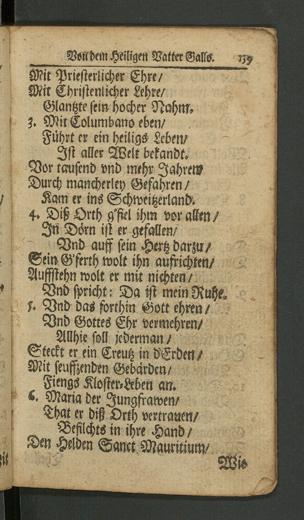 Von dem Heiligen Vatter Gallo. 139
Mit Priesterlicher Ehre/
Mit Christenlicher Lehre/
Glantzte sein hocher Nahm.
3. Mit Columbano eben/
Führt er ein heiligs Leben/
Ist aller Welt bekandt.
Vor tausend vnd mehr Jahren
Durch mancherley Gefahren/
Kam er ins Schweitzerland.
4. Diß Orth g'fiel ihm vor allen/
In Dörn ist er gefallen/
Vnd auff sein Hertz darzu/
Sein G'ferth wolt ihn aufrichten/
Auffstehn wolt er mit nichten/
Vnd spricht: Da ist mein Ruhe.
5. Vnd das forthin Gott ehren/
Vnd Gottes Ehr vermehren/
Allhie soll jederman/
Steckt er ein Creutz in d'Erden/
Mit seuffzenden Gebärden/
Fiengs Kloster-Leben an.
6. Maria der Jungfrawen/
That er diß Orth vertrauen/
Befilchts in ihre Hand/
Den Helden Sanct Mauritium/
Wie